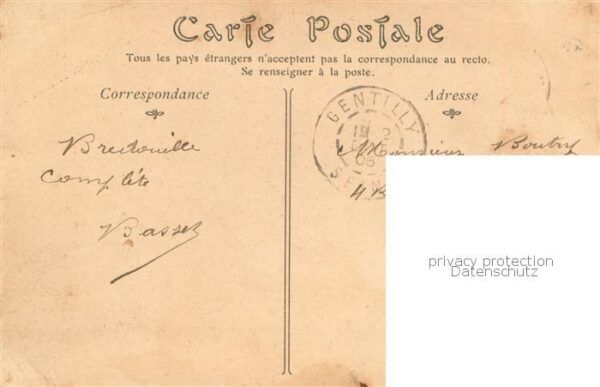 Carte Postale
Tous les pays étrangers n'acceptent pas la correspondance au recto.
Se renseigner à la poste.
Correspondance
Adresse
GENTILLY
SEINE
Monsieur Boutry
Bredouille
Complète
Basset
privacy protection
Datenschutz